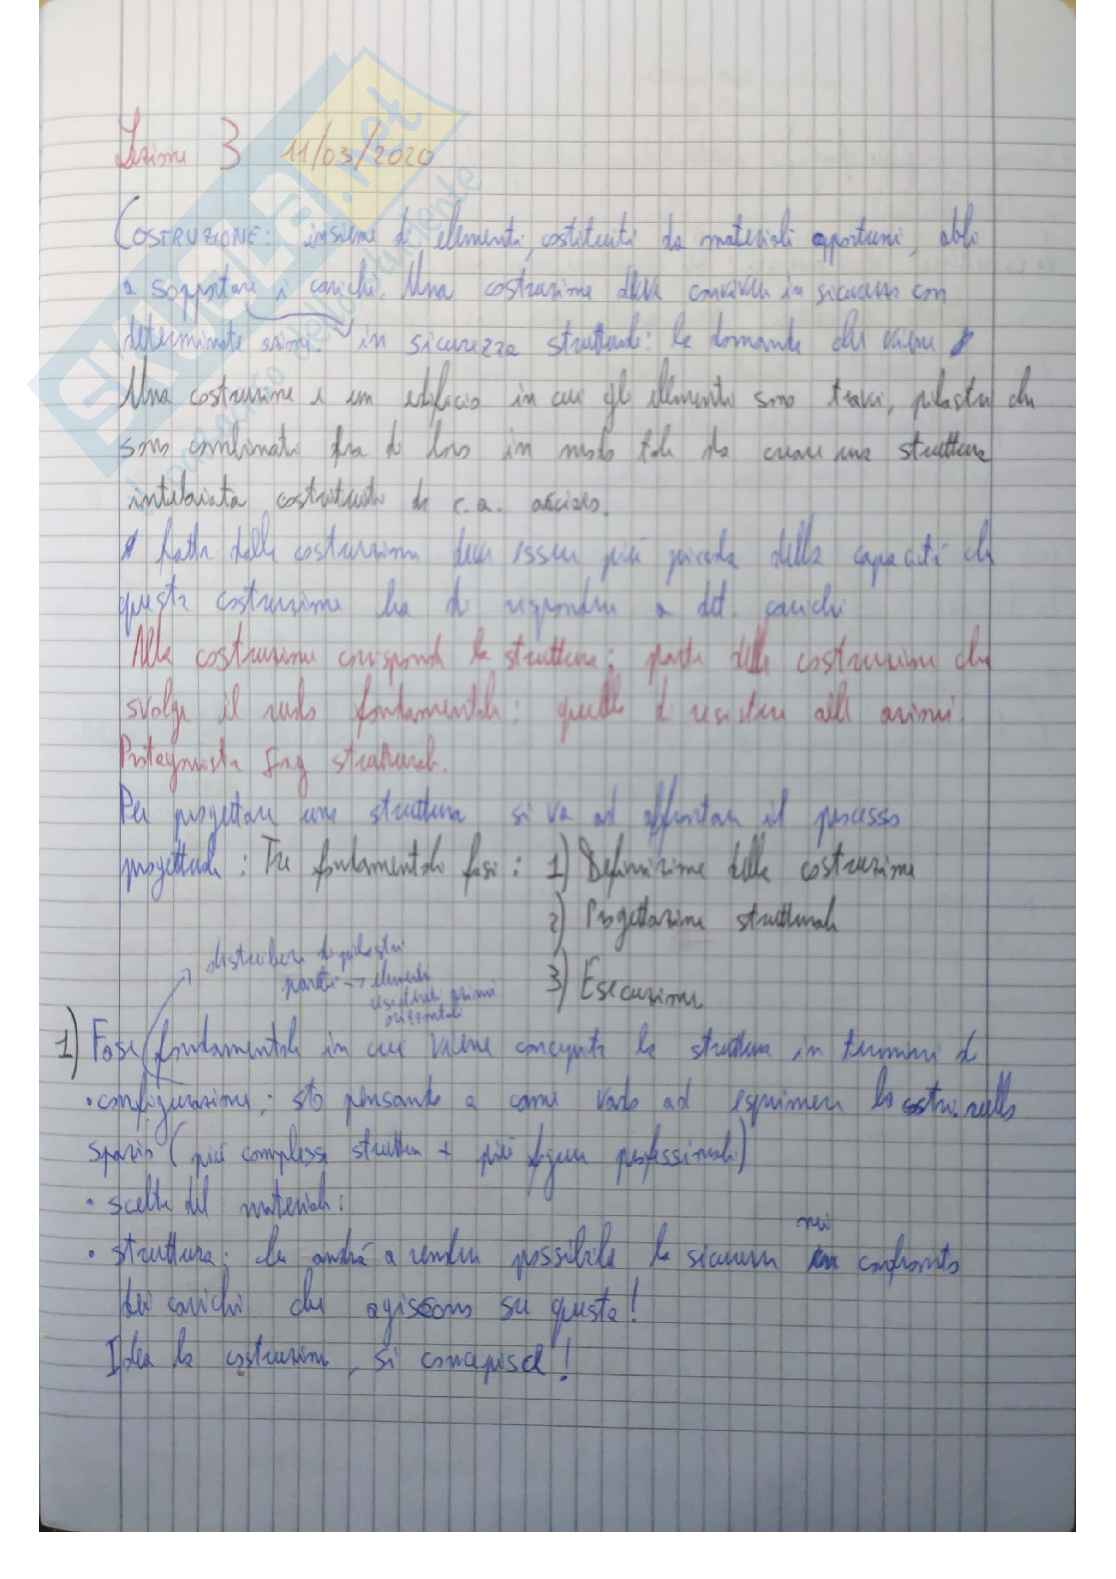 Lezione 3 11/03/2020
COSTRUZIONE: insieme di elementi, costituiti da materiali opportuni, abili
a sopportare i carichi. Una costruzione deve convivere in sicurezza con
determinate azioni. in sicurezza strutturale: la domanda che viene
Una costruzione è un edificio in cui gli elementi sono travi, pilastri che
sono combinati fra di loro in modo tale da creare una struttura
intelaiata costituita da c.a. acciaio.
fatta dalla costruzione deve essere più piccola della capacità che
questa costruzione ha di rispondere a det. carichi
Alla costruzione corrisponde la struttura: parte della costruzione che
svolge il ruolo fondamentale: quello di resistere alle azioni.
Protagonista Ing strutturale.
Per progettare una struttura si va ad affrontare il processo
progettuale: Tre fondamentali fasi: 1) Definizione della costruzione
2) Progettazione strutturale
3) Esecuzione
distribuire i pilastri
elementi
orizzontali
1) Fase fondamentale in cui viene concepita la struttura in termini di
• configurazione: sto pensando a come vado ad esprimere la costru. nello
spazio (più complessa struttura + più figure professionali)
• scelta del materiale:
• struttura: che andrà a rendere possibile la sicurezza nei confronti
dei carichi che agiscono su questa!
Idea la costruzione, si concepisce!
SKUOLA.net